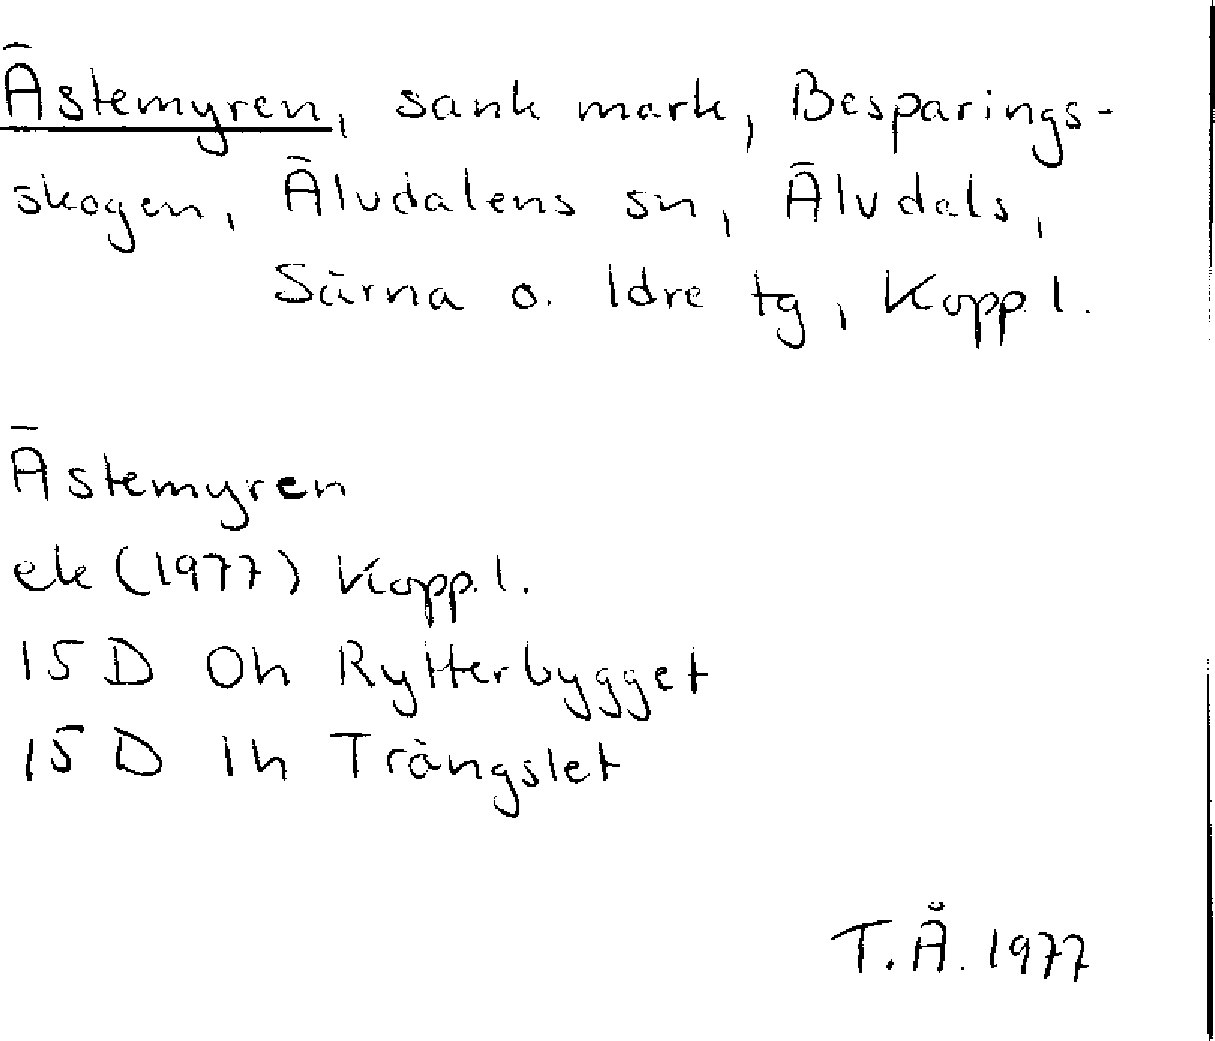 Ästemyren, sank mark, Besparings-
skogen, Älvdalens sn, Älvdals,
Särna o. Idre tg, Kopp.l.
Ästemyren
ek (1977) Kopp.l.
15 D 0h Rytterbygget
15 D 1h Trängslet
T.Å. 1977